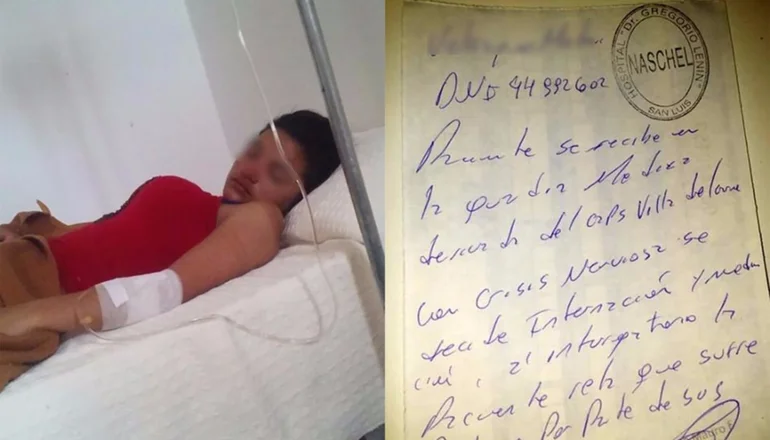 HOSPITAL "Dr. GREGORIO LENIN"
NASCHEL
SAN LUIS
DNI 44992602
Paciente se recibe en
la guardia Medica
derivada del caps Villa del Carmen
con crisis Nerviosa se
decide Internación y
al interrogatorio la
Paciente relata que sufre
Por Parte de sus